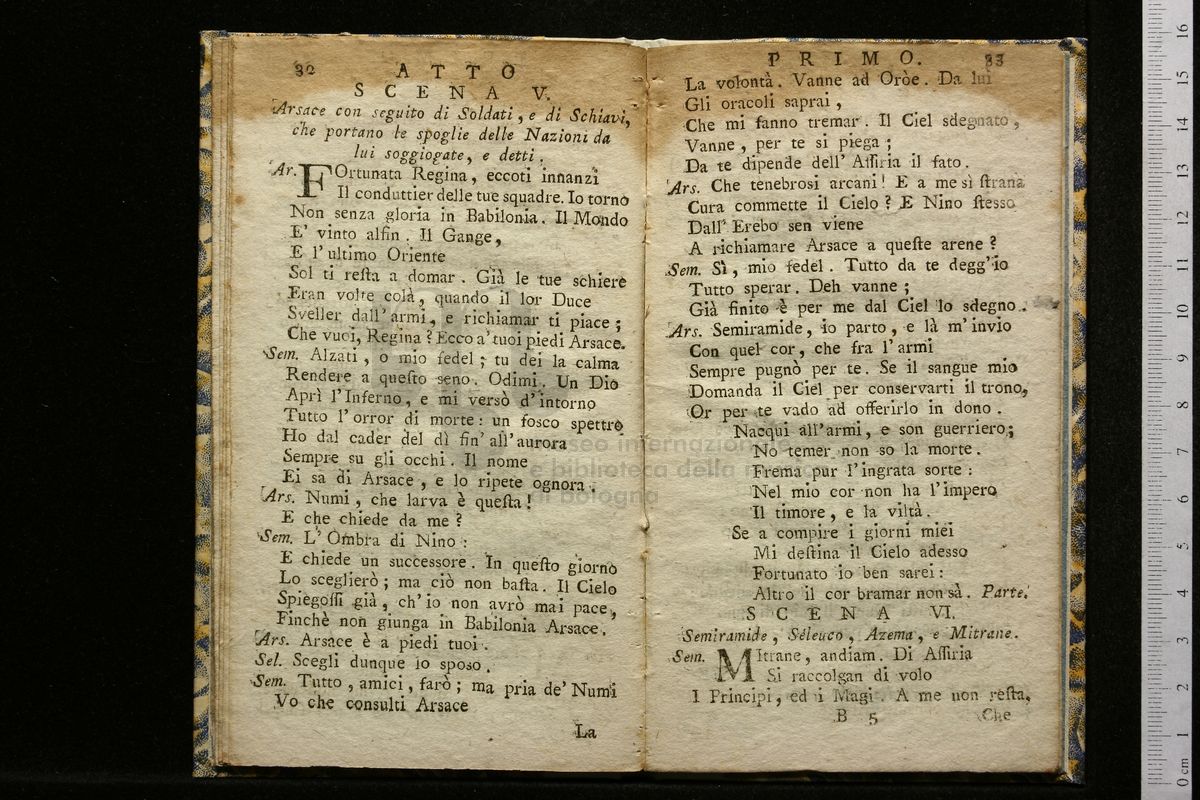 32 ATTO
SCENA V.
Arsace con seguito di Soldati, e di Schiavi,
che portano le spoglie delle Nazioni da
lui soggiogate, e detti.
Ar. FOrtunata Regina, eccoti innanzi
Il conduttier delle tue squadre. Io torno
Non senza gloria in Babilonia. Il Mondo
E' vinto alfin. Il Gange,
E l'ultimo Oriente
Sol ti resta a domar. Già le tue schiere
Eran volte colà, quando il lor Duce
Sveller dall'armi, e richiamar ti piace;
Che vuoi, Regina? Ecco a' tuoi piedi Arsace.
Sem. Alzati, o mio fedel; tu dei la calma
Rendere a questo seno. Odimi. Un Dio
Aprì l'Inferno, e mi versò d'intorno
Tutto l'orror di morte: un fosco spettro
Ho dal cader del dì fin' all'aurora
Sempre su gli occhi. Il nome
Ei sa di Arsace, e lo ripete ognora.
Ars. Numi, che larva è questa!
E che chiede da me?
Sem. L'Ombra di Nino:
E chiede un successore. In questo giorno
Lo sceglierò; ma ciò non basta. Il Cielo
Spiegossi già, ch'io non avrò mai pace,
Finchè non giunga in Babilonia Arsace.
Ars. Arsace è a piedi tuoi.
Sel. Scegli dunque lo sposo.
Sem. Tutto, amici, farò; ma pria de' Numi
Vo che consulti Arsace
La
PRIMO. 33
La volontà. Vanne ad Oròe. Da lui
Gli oracoli saprai,
Che mi fanno tremar. Il Ciel sdegnato,
Vanne, per te si piega;
Da te dipende dell'Assiria il fato.
Ars. Che tenebrosi arcani! E a me sì strana
Cura commette il Cielo? E Nino stesso
Dall'Erebo sen viene
A richiamare Arsace a queste arene?
Sem. Sì, mio fedel. Tutto da te degg'io
Tutto sperar. Deh vanne;
Già finito è per me dal Ciel lo sdegno.
Ars. Semiramide, io parto, e là m'invio
Con quel cor, che fra l'armi
Sempre pugnò per te. Se il sangue mio
Domanda il Ciel per conservarti il trono,
Or per te vado ad offerirlo in dono.
Nacqui all'armi, e son guerriero;
No temer non so la morte.
Frema pur l'ingrata sorte:
Nel mio cor non ha l'impero
Il timore, e la viltà.
Se a compire i giorni miei
Mi destina il Cielo adesso
Fortunato io ben sarei:
Altro il cor bramar non sà. Parte.
SCENA VI.
Semiramide, Seleuco, Azema, e Mitrane.
Sem. MItrane, andiam. Di Assiria
Si raccolgan di volo
I Principi, ed i Magi. A me non resta,
B 5 Che
museo internazionale
e biblioteca della musica
di bologna
0 cm 1 2 3 4 5 6 7 8 9 10 11 12 13 14 15 16